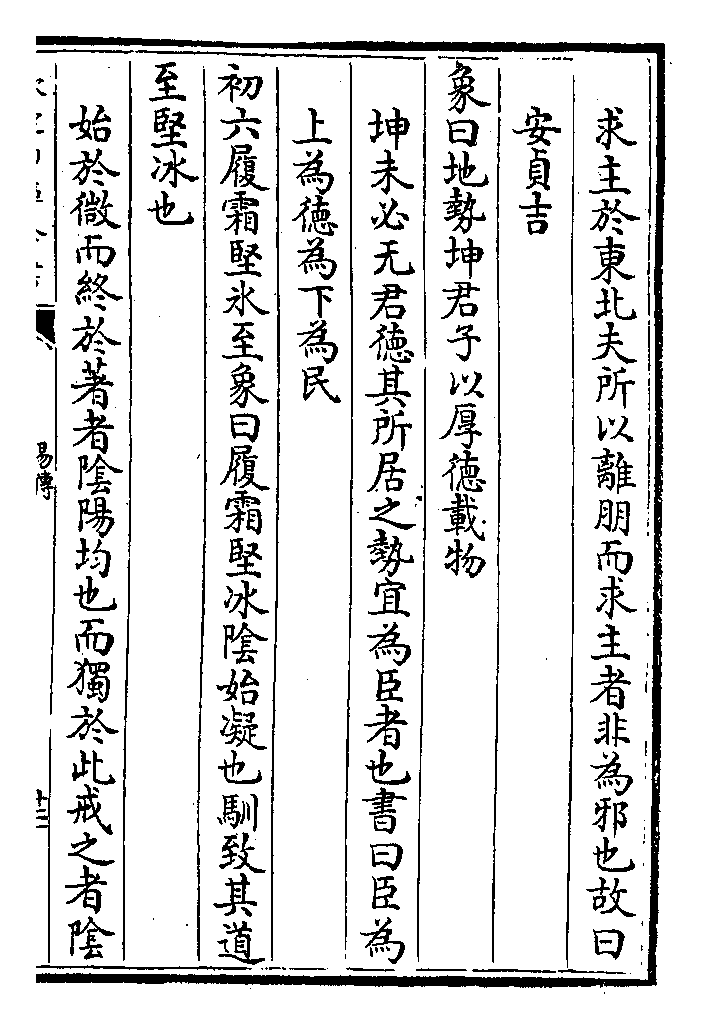 求主於東北夫所以離朋而求主者非為邪也故曰
安貞吉
象曰地勢坤君子以厚徳載物
坤未必无君徳其所居之勢宜為臣者也書曰臣為
上為徳為下為民
初六履霜堅氷至象曰履霜堅冰陰始凝也馴致其道
至堅冰也
始於微而終於著者陰陽均也而獨於此戒之者陰
易傳